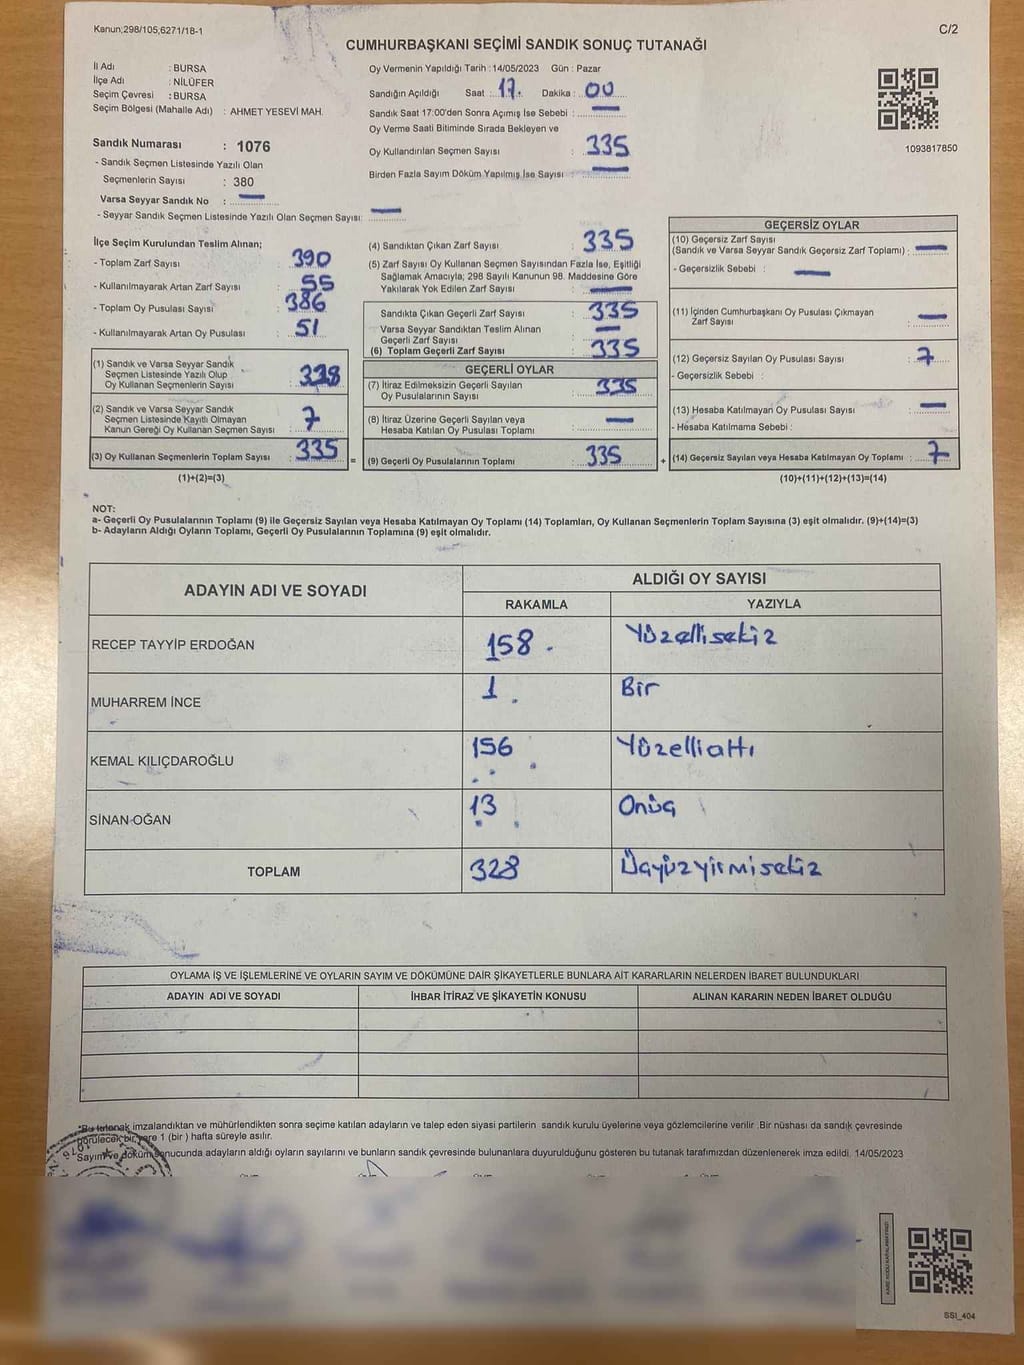 Kanun;298/105,6271/18-1
C/2
CUMHURBAŞKANI SEÇİMİ SANDIK SONUÇ TUTANAĞI
İl Adı : BURSA
İlçe Adı : NİLÜFER
Seçim Çevresi : BURSA
Seçim Bölgesi (Mahalle Adı) : AHMET YESEVİ MAH.
Sandık Numarası : 1076
- Sandık Seçmen Listesinde Yazılı Olan
Seçmenlerin Sayısı : 380
Varsa Seyyar Sandık No : —
- Seyyar Sandık Seçmen Listesinde Yazılı Olan Seçmen Sayısı: —
Oy Vermenin Yapıldığı Tarih : 14/05/2023 Gün : Pazar
Sandığın Açıldığı Saat : 17. Dakika : 00
Sandık Saat 17:00'den Sonra Açımış İse Sebebi : —
Oy Verme Saati Bitiminde Sırada Bekleyen ve
Oy Kullandırılan Seçmen Sayısı : 335
Birden Fazla Sayım Döküm Yapılmış İse Sayısı : —
1093817850
İlçe Seçim Kurulundan Teslim Alınan;
- Toplam Zarf Sayısı : 390
- Kullanılmayarak Artan Zarf Sayısı : 55
- Toplam Oy Pusulası Sayısı : 386
- Kullanılmayarak Artan Oy Pusulası : 51
(1) Sandık ve Varsa Seyyar Sandık
Seçmen Listesinde Yazılı Olup
Oy Kullanan Seçmenlerin Sayısı : 328
(2) Sandık ve Varsa Seyyar Sandık
Seçmen Listesinde Kayıtlı Olmayan
Kanun Gereği Oy Kullanan Seçmen Sayısı : 7
(3) Oy Kullanan Seçmenlerin Toplam Sayısı : 335
(1)+(2)=(3)
=
(4) Sandıktan Çıkan Zarf Sayısı : 335
(5) Zarf Sayısı Oy Kullanan Seçmen Sayısından Fazla İse, Eşitliği
Sağlamak Amacıyla; 298 Sayılı Kanunun 98. Maddesine Göre
Yakılarak Yok Edilen Zarf Sayısı : —
Sandıkta Çıkan Geçerli Zarf Sayısı : 335
Varsa Seyyar Sandıktan Teslim Alınan
Geçerli Zarf Sayısı : —
(6) Toplam Geçerli Zarf Sayısı : 335
GEÇERLİ OYLAR
(7) İtiraz Edilmeksizin Geçerli Sayılan
Oy Pusulalarının Sayısı : 335
(8) İtiraz Üzerine Geçerli Sayılan veya
Hesaba Katılan Oy Pusulası Toplamı : —
(9) Geçerli Oy Pusulalarının Toplamı : 335
+
GEÇERSİZ OYLAR
(10) Geçersiz Zarf Sayısı
(Sandık ve Varsa Seyyar Sandık Geçersiz Zarf Toplamı) : —
- Geçersizlik Sebebi : —
(11) İçinden Cumhurbaşkanı Oy Pusulası Çıkmayan
Zarf Sayısı : —
(12) Geçersiz Sayılan Oy Pusulası Sayısı : 7
- Geçersizlik Sebebi :
(13) Hesaba Katılmayan Oy Pusulası Sayısı : —
- Hesaba Katılmama Sebebi :
(14) Geçersiz Sayılan veya Hesaba Katılmayan Oy Toplamı : 7
(10)+(11)+(12)+(13)=(14)
NOT:
a- Geçerli Oy Pusulalarının Toplamı (9) ile Geçersiz Sayılan veya Hesaba Katılmayan Oy Toplamı (14) Toplamları, Oy Kullanan Seçmenlerin Toplam Sayısına (3) eşit olmalıdır. (9)+(14)=(3)
b- Adayların Aldığı Oyların Toplamı, Geçerli Oy Pusulalarının Toplamına (9) eşit olmalıdır.
ADAYIN ADI VE SOYADI
ALDIĞI OY SAYISI
RAKAMLA YAZIYLA
RECEP TAYYİP ERDOĞAN 158 Yüzellisekiz
MUHARREM İNCE 1 Bir
KEMAL KILIÇDAROĞLU 156 Yüzelliattı
SİNAN OĞAN 13 Onüç
TOPLAM 328 Üçyüzyirmisekiz
OYLAMA İŞ VE İŞLEMLERİNE VE OYLARIN SAYIM VE DÖKÜMÜNE DAİR ŞİKAYETLERLE BUNLARA AİT KARARLARIN NELERDEN İBARET BULUNDUKLARI
ADAYIN ADI VE SOYADI İHBAR İTİRAZ VE ŞİKAYETİN KONUSU ALINAN KARARIN NEDEN İBARET OLDUĞU
*Bu tutanak imzalandıktan ve mühürlendikten sonra seçime katılan adayların ve talep eden siyasi partilerin sandık kurulu üyelerine veya gözlemcilerine verilir .Bir nüshası da sandık çevresinde
görülecek bir yere 1 (bir ) hafta süreyle asılır.
Sayım ve döküm sonucunda adayların aldığı oyların sayılarını ve bunların sandık çevresinde bulunanlara duyurulduğunu gösteren bu tutanak tarafımızdan düzenlenerek imza edildi. 14/05/2023
SSI_404